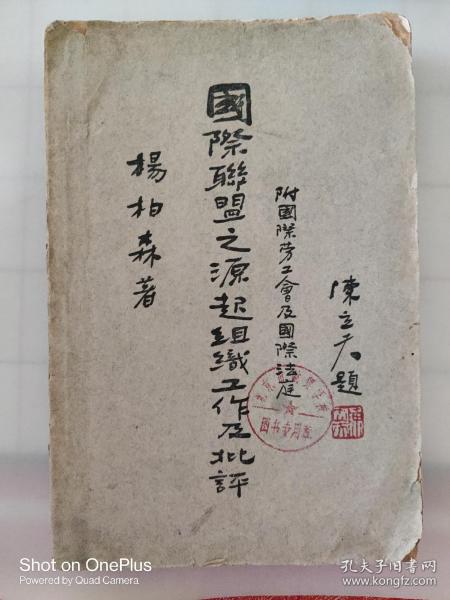 陳立夫題
附國際勞工會及國際法庭
國際聯盟之源起組織工作及批評
楊柏森著
图书专用章
Shot on OnePlus
Powered by Quad Camera
孔夫子旧书网
www.kongfz.com